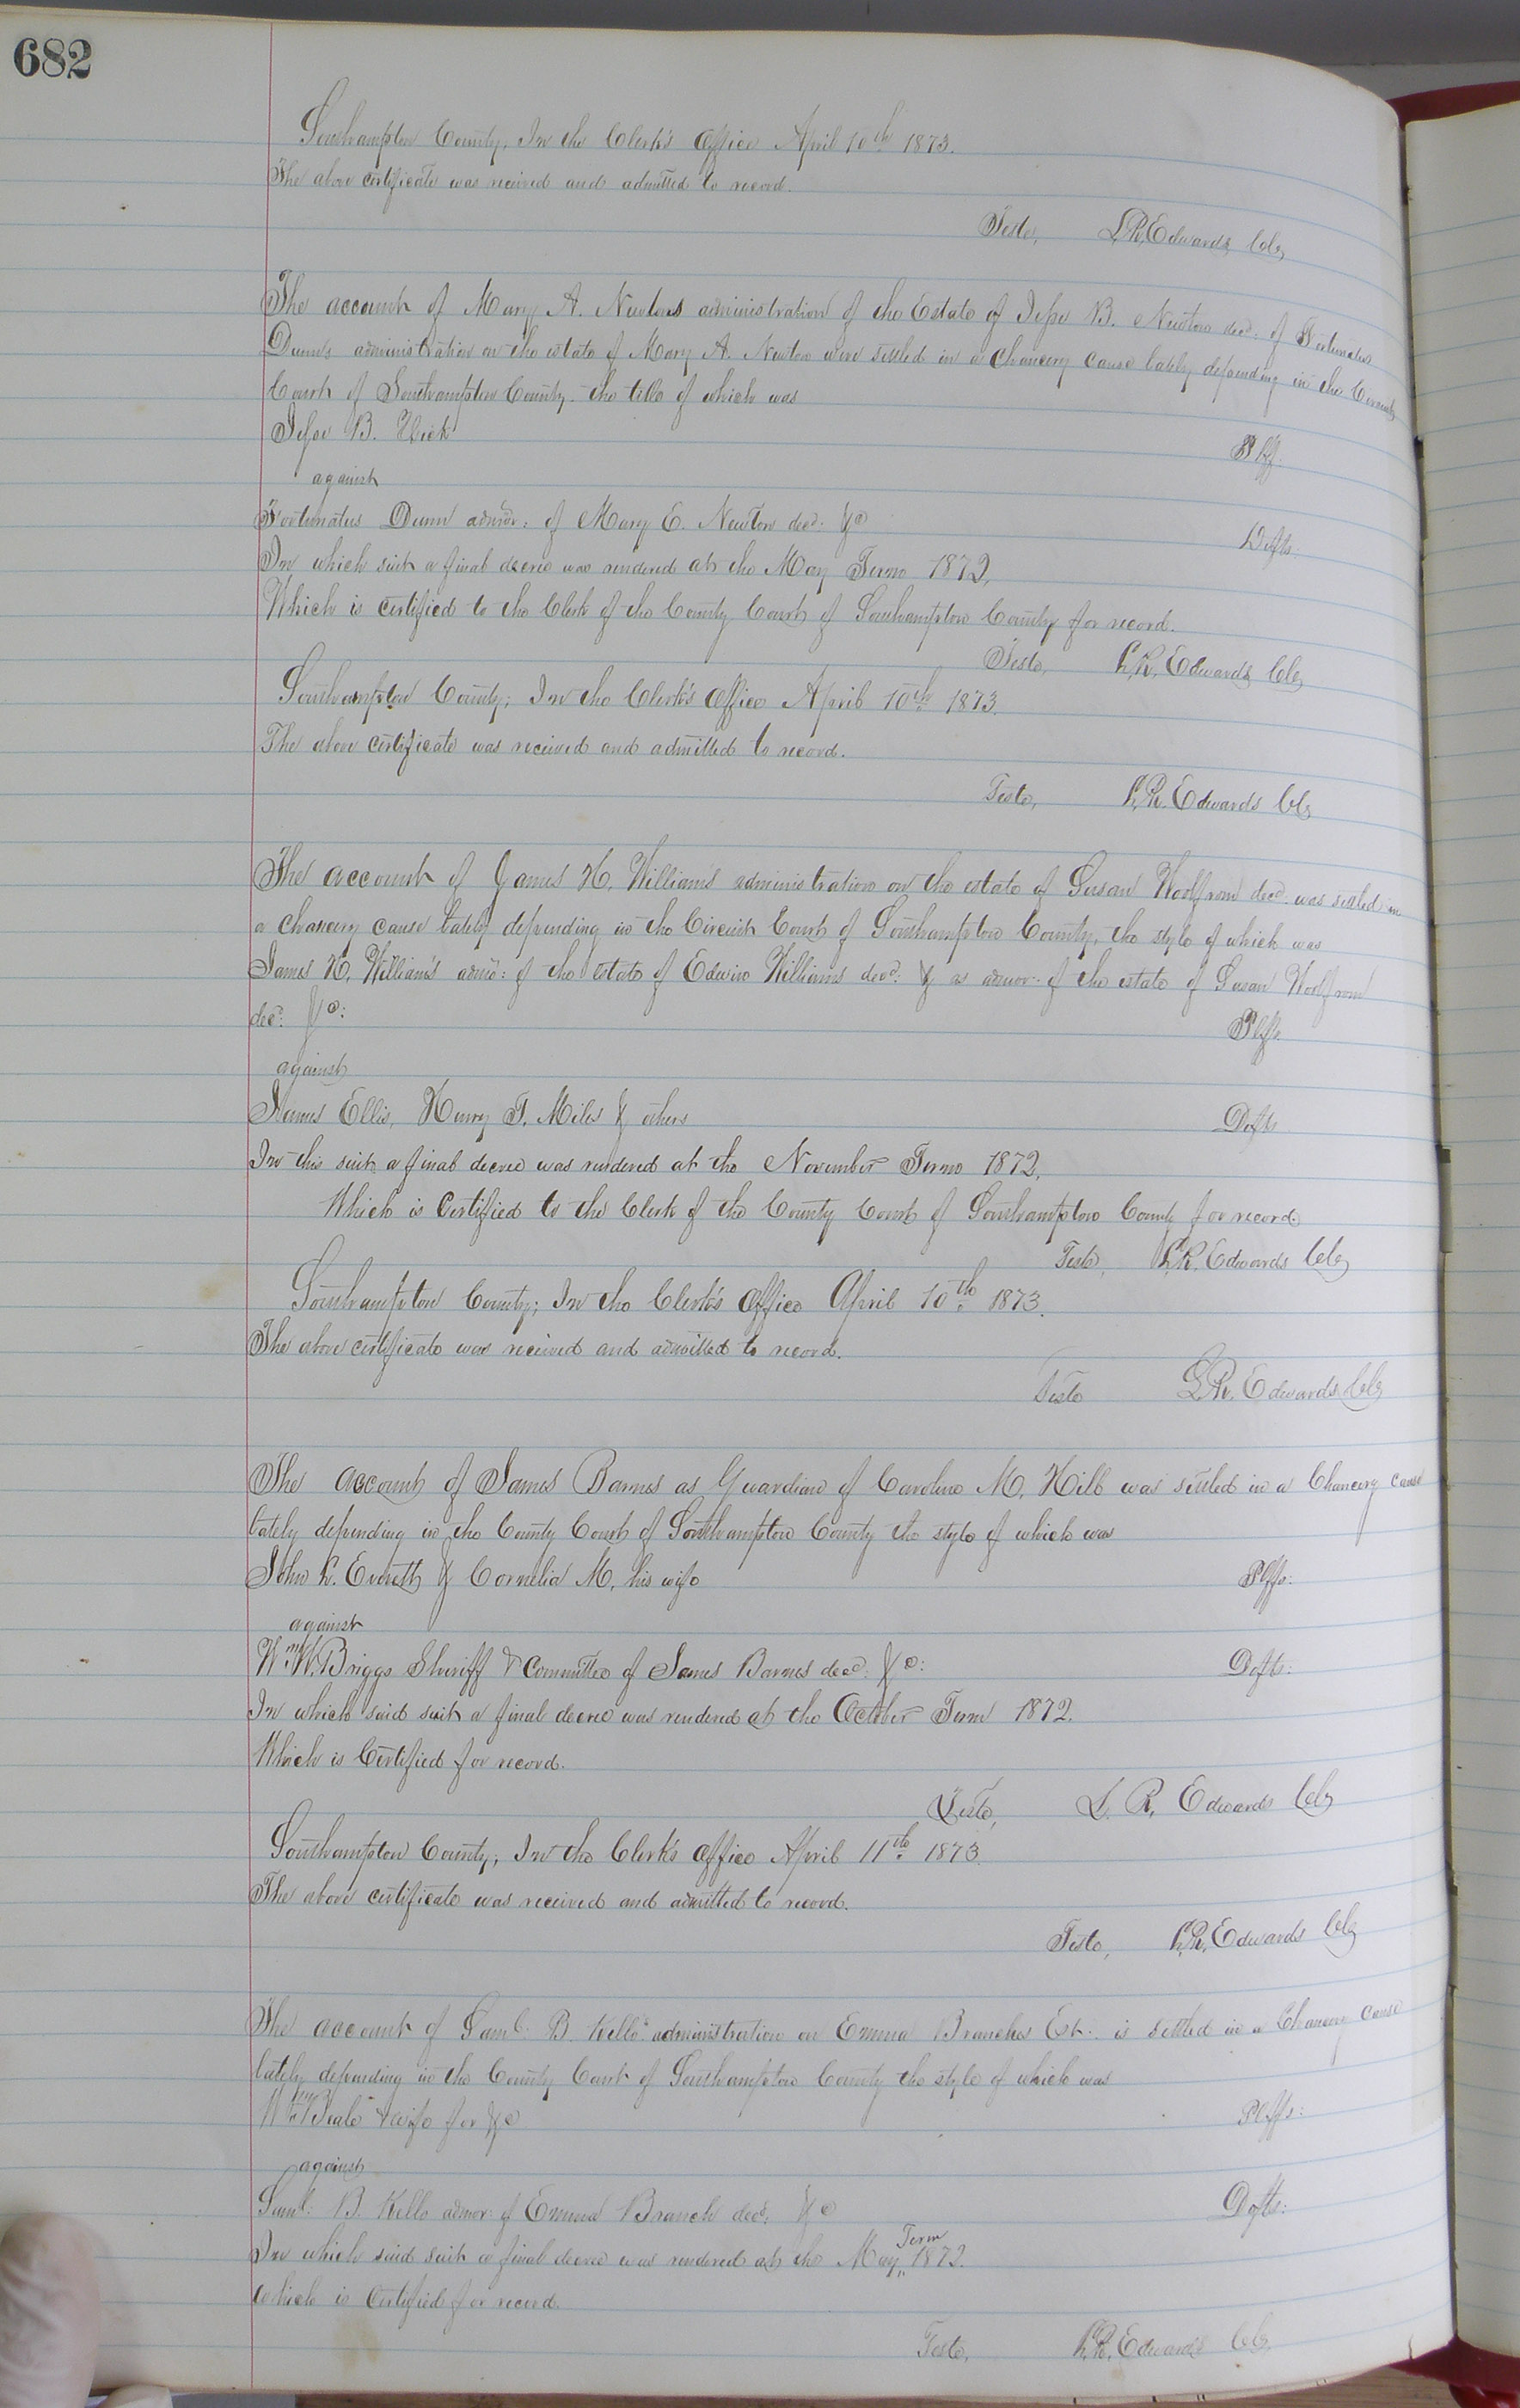 682
Southampton County, In the Clerk's Office April 10th 1873.
The above certificate was received and admitted to record.
Teste, L. R. Edwards Clk
The account of Mary A. Newtons administration of the Estate of Jesse B. Newton decd: of Fortunatus
Dunn's administration on the estate of Mary A. Newton were settled in a Chancery cause lately depending in the County
Court of Southampton County the title of which was
Jesse B. Plff.
against
Fortunatus Dunn admor: of Mary E. Newton decd: &c Defts.
In which suit a final decree was rendered at the May Term 1872,
Which is certified to the Clerk of the County Court of Southampton County for record.
Teste, L. R. Edwards Clk
Southampton County; In the Clerk's Office April 10th 1873.
The above certificate was received and admitted to record.
Teste, L. R. Edwards Clk
The account of James H. Williams administration on the estate of Susan Woolfrom decd. was settled in
a chancery cause lately depending in the Circuit Court of Southampton County, the style of which was
James H. William's admor: of the estate of Edwin Williams decd: & as admor. of the estate of Susan Woolfrom
decd: &c: Plffs.
against
James Ellis, Henry T. Miles & others Defts
In this suit a final decree was rendered at the November Term 1872.
Which is Certified to the Clerk of the County Court of Southampton County for record.
Teste, L. R. Edwards Clk
Southampton County; In the Clerk's Office April 10th 1873.
The above certificate was received and admitted to record.
Teste L. R. Edwards Clk
The account of James Barnes as Guardian of Caroline M. Hill was settled in a Chancery cause
lately depending in the County Court of Southampton County the style of which was
John L. Everett & Cornelia M. his wife Plffs:
against
Wm. W. Briggs Sheriff & Committee of James Barnes decd: &c: Defts:
In which said suit a final decree was rendered at the October Term 1872.
Which is Certified for record.
Teste, L. R. Edwards Clk
Southampton County; In the Clerk's Office April 11th 1873.
The above certificate was received and admitted to record.
Teste, L. R. Edwards Clk
The account of Saml. B. Kello's administration on Emma Branches Est. is settled in a Chancery cause
lately depending in the County Court of Southampton County the style of which was
Wm. Beale & wife for &c Plffs:
against
Saml: B. Kello admor: of Emma Branch decd: &c Defts:
In which said suit a final decree was rendered at the May Term 1872.
Which is Certified for record.
Teste, L. R. Edwards Clk